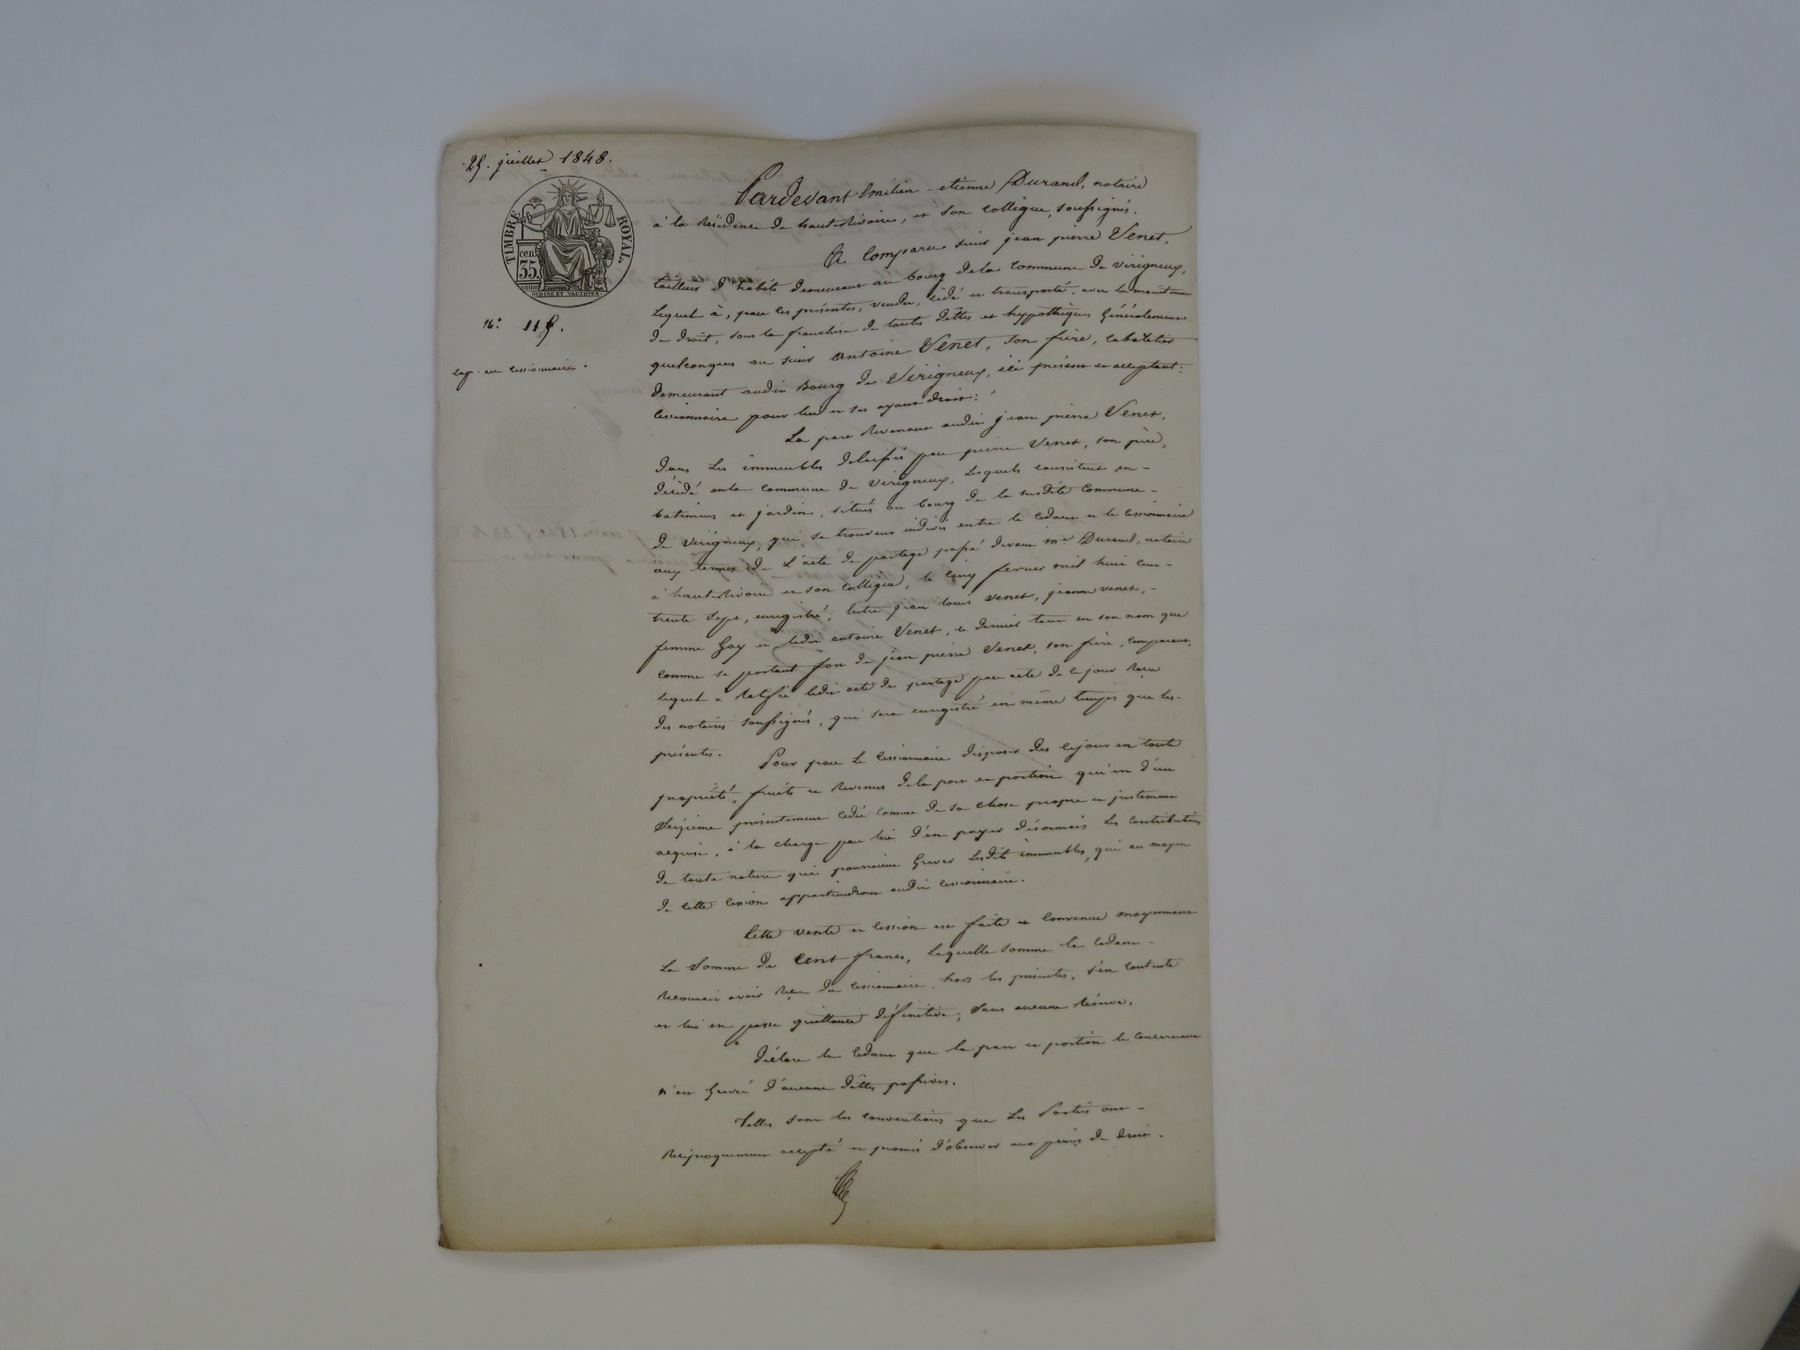 25. juillet 1848.
TIMBRE ROYAL.
cent. 35.
N.° 115.
exp. au cessionnaire.
Pardevant Emilien-etienne Durand, notaire
à la Résidence de haut-Rivoire, et son collègue, soussignés.
A Comparu sieur jean pierre Venet,
tailleur d'habits demeurant au bourg de la commune de virigneux,
Lequel à, par les présentes, vendu, cédé et transporté, avec la maintenue
de droit, sous la franchise de toutes dêttes et hypothèques Généralement
quelconques au sieur antoine Venet, son frère, cabaretier
demeurant audit Bourg de Virigneux, ici présent et acceptant:
cessionnaire pour lui et ses ayant droit:
La part Revenant audit jean pierre Venet,
dans les immeubles delaissés par pierre Venet, son père,
décédé en la commune de Virigneux, Lesquels consistent en-
batiments et jardin, situés au bourg de la susdite commune-
de Virigneux, qui se trouvent indivis entre le cédant et le cessionnaire
aux termes de L'acte de partage passé devant me Durand, notaire
à haut-Rivoire et son collègue, le cinq fevrier mil huit cent-
trente sept, enregistré; Entre jean louis venet, jeanne venet,-
femme Gay et ledit antoine Venet, ce dernier tant en son nom que
comme se portant fort de jean pierre Venet, son frère, comparant,
lequel a Ratifié ledit acte de partage par acte de ce jour Reçu
des notaires soussignés, qui sera enregistré en même temps que les-
présentes.
Pour par le cessionnaire disposer dès cejour en toute
propriété, fruits et Revenus de la part et portion qui est d'un
Seizième présentement cédée comme de sa chose propre et justement
acquise, à la charge par lui d'en payer désormais les contributions
de toute nature qui pourraient Grever lesdits immeubles, qui au moyen
de cette cession appartiendront audit cessionnaire.
Cette vente et cession est faite et convenue moyennant
La Somme de Cent francs, Laquelle somme le cédant-
Reconnait avoir Reçu du cessionnaire, hors les présentes, s'en contente
et lui en passe quittance définitive, sans aucune Réserve.
Déclare le cédant que la part et portion le concernant
n'est Grevée d'aucune dêttes passives.
Telles sont les conventions que les Parties ont-
Reciproquement accepté et promis d'observer aux peines de droit.